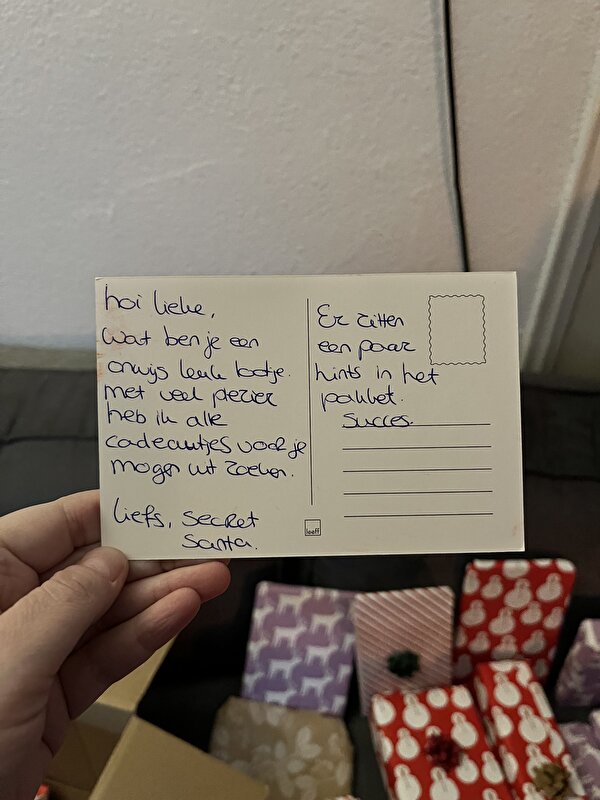 hoi lieke,
wat ben je een
onwijs leuk lootje.
met veel plezier
heb ik alle
cadeautjes voor je
mogen uit zoeken.
liefs, secret
santa.
Er zitten
een paar
hints in het
pakket.
succes.
leeff